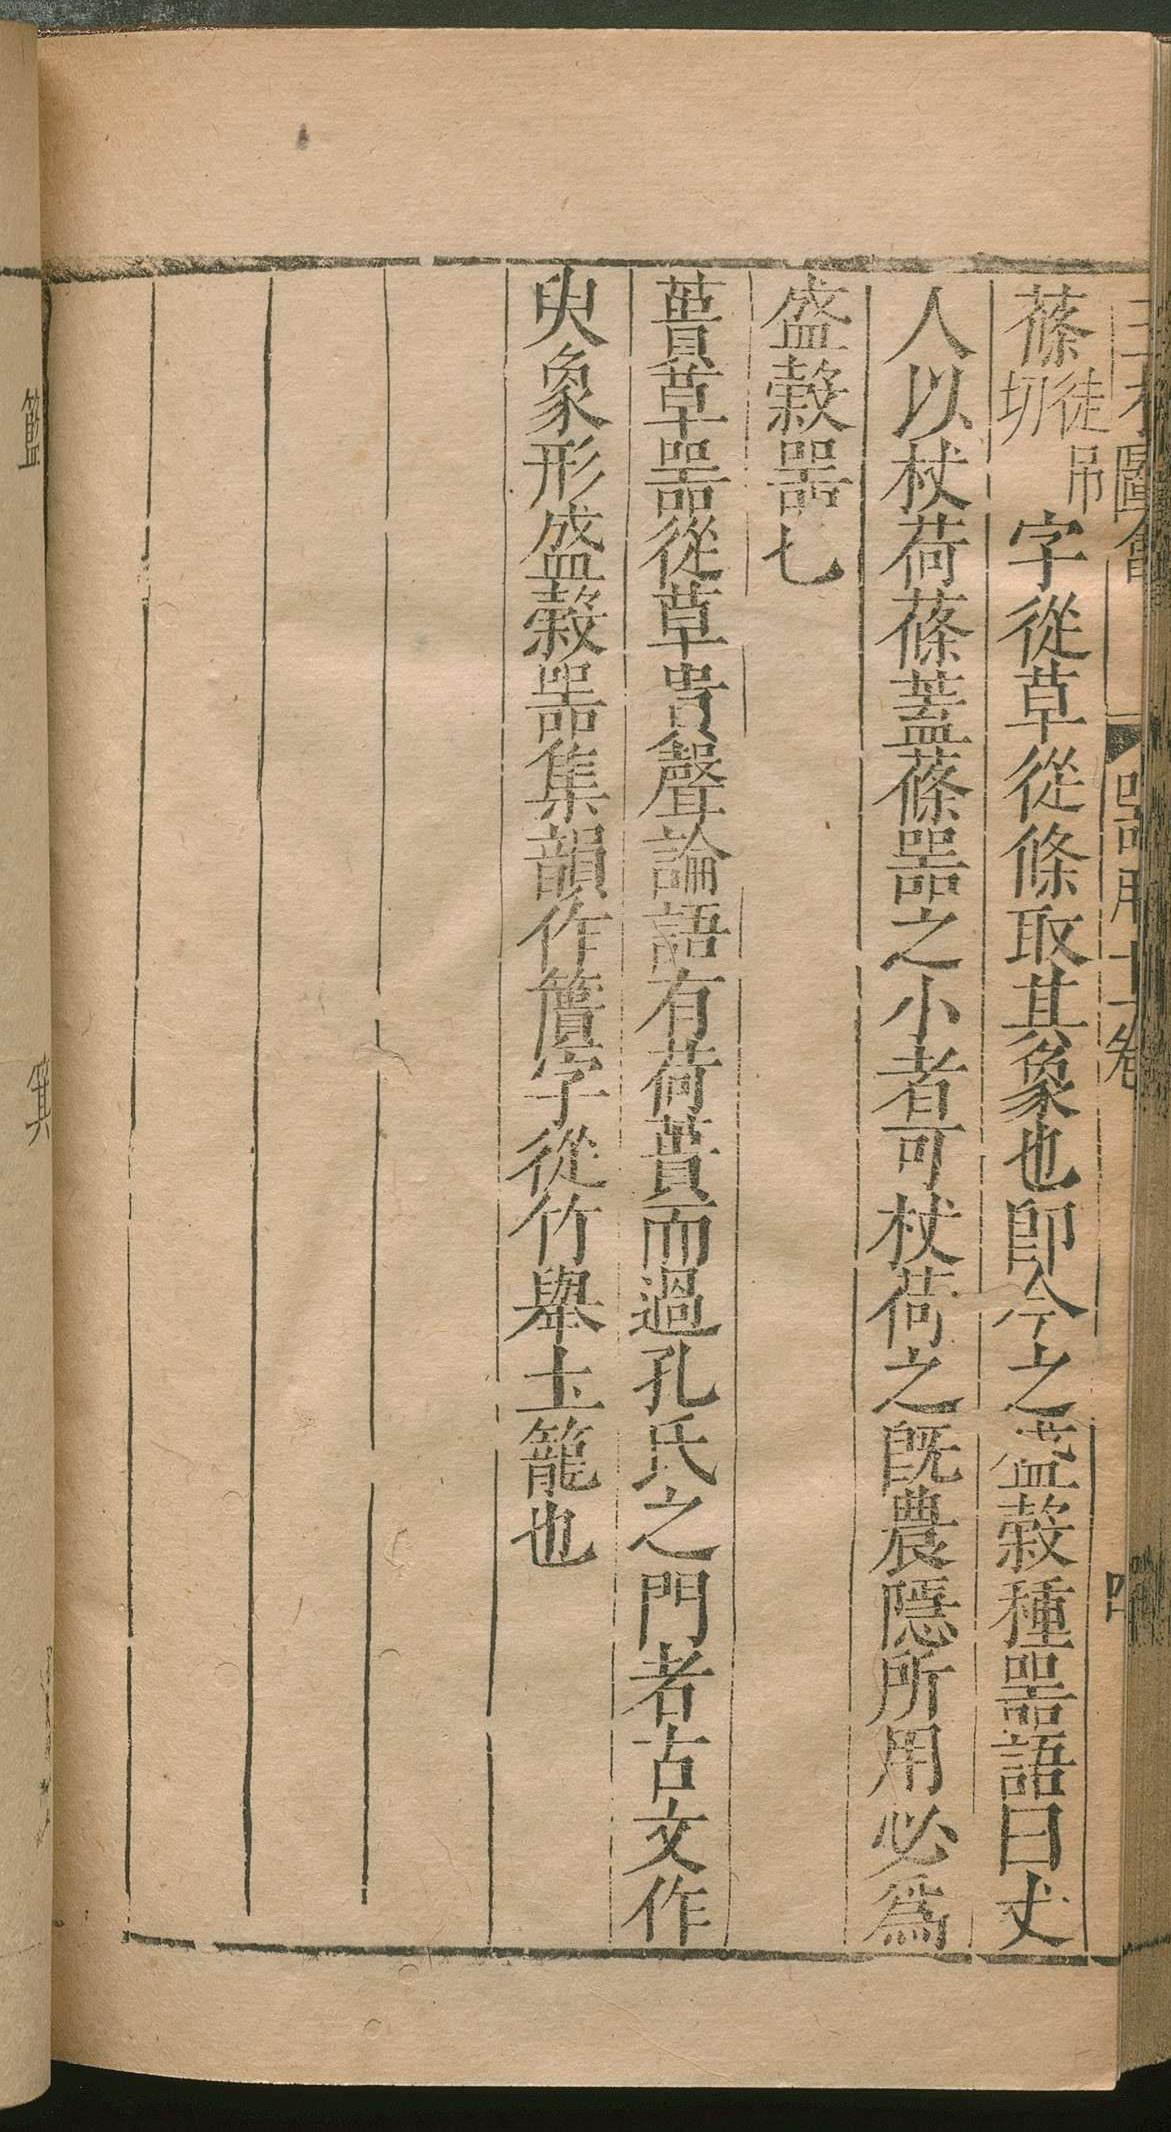 蓧徒吊切字從草從條取其象也卽今之盛穀種噐語曰丈
人以杖荷蓧蓋蓧噐之小者可杖荷之旣農隱所用必爲
盛穀噐七
蕢草噐從草貴聲論語有荷蕢而過孔氏之門者古文作
臾象形盛穀噐集韻作簣字從竹舉土籠也
籃
箕